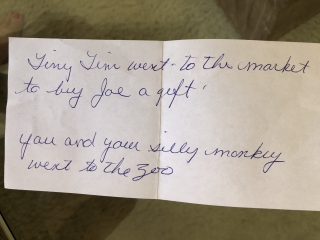 Tiny Tim went to the market
to buy Joe a gift.
you and your silly monkey
went to the zoo